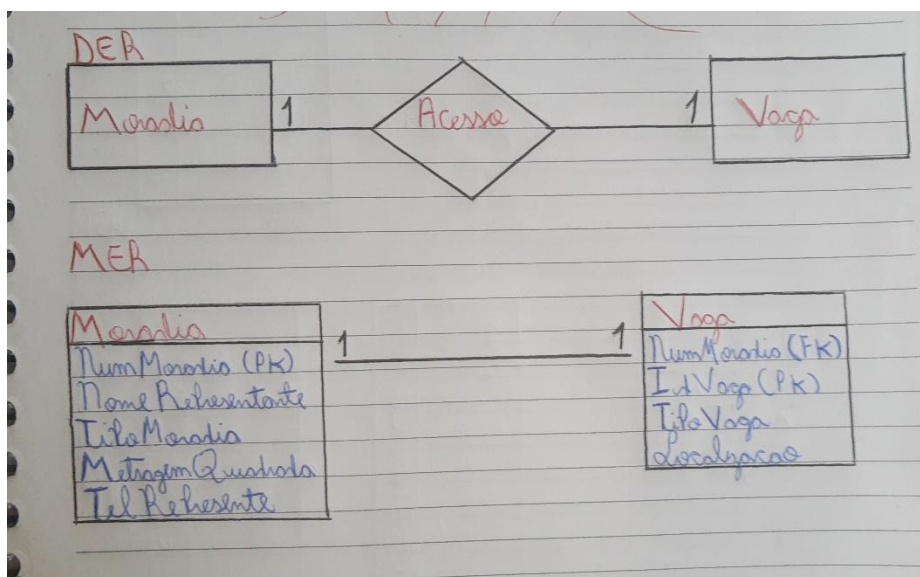 DER
Moradia 1 Acesso 1 Vaga
MER
Moradia 1 1 Vaga
NumMoradia (PK)
NomeRepresentante
TipoMoradia
MetragemQuadrada
TelRepresente
NumMoradia (FK)
IdVaga (PK)
TipoVaga
Localizacao